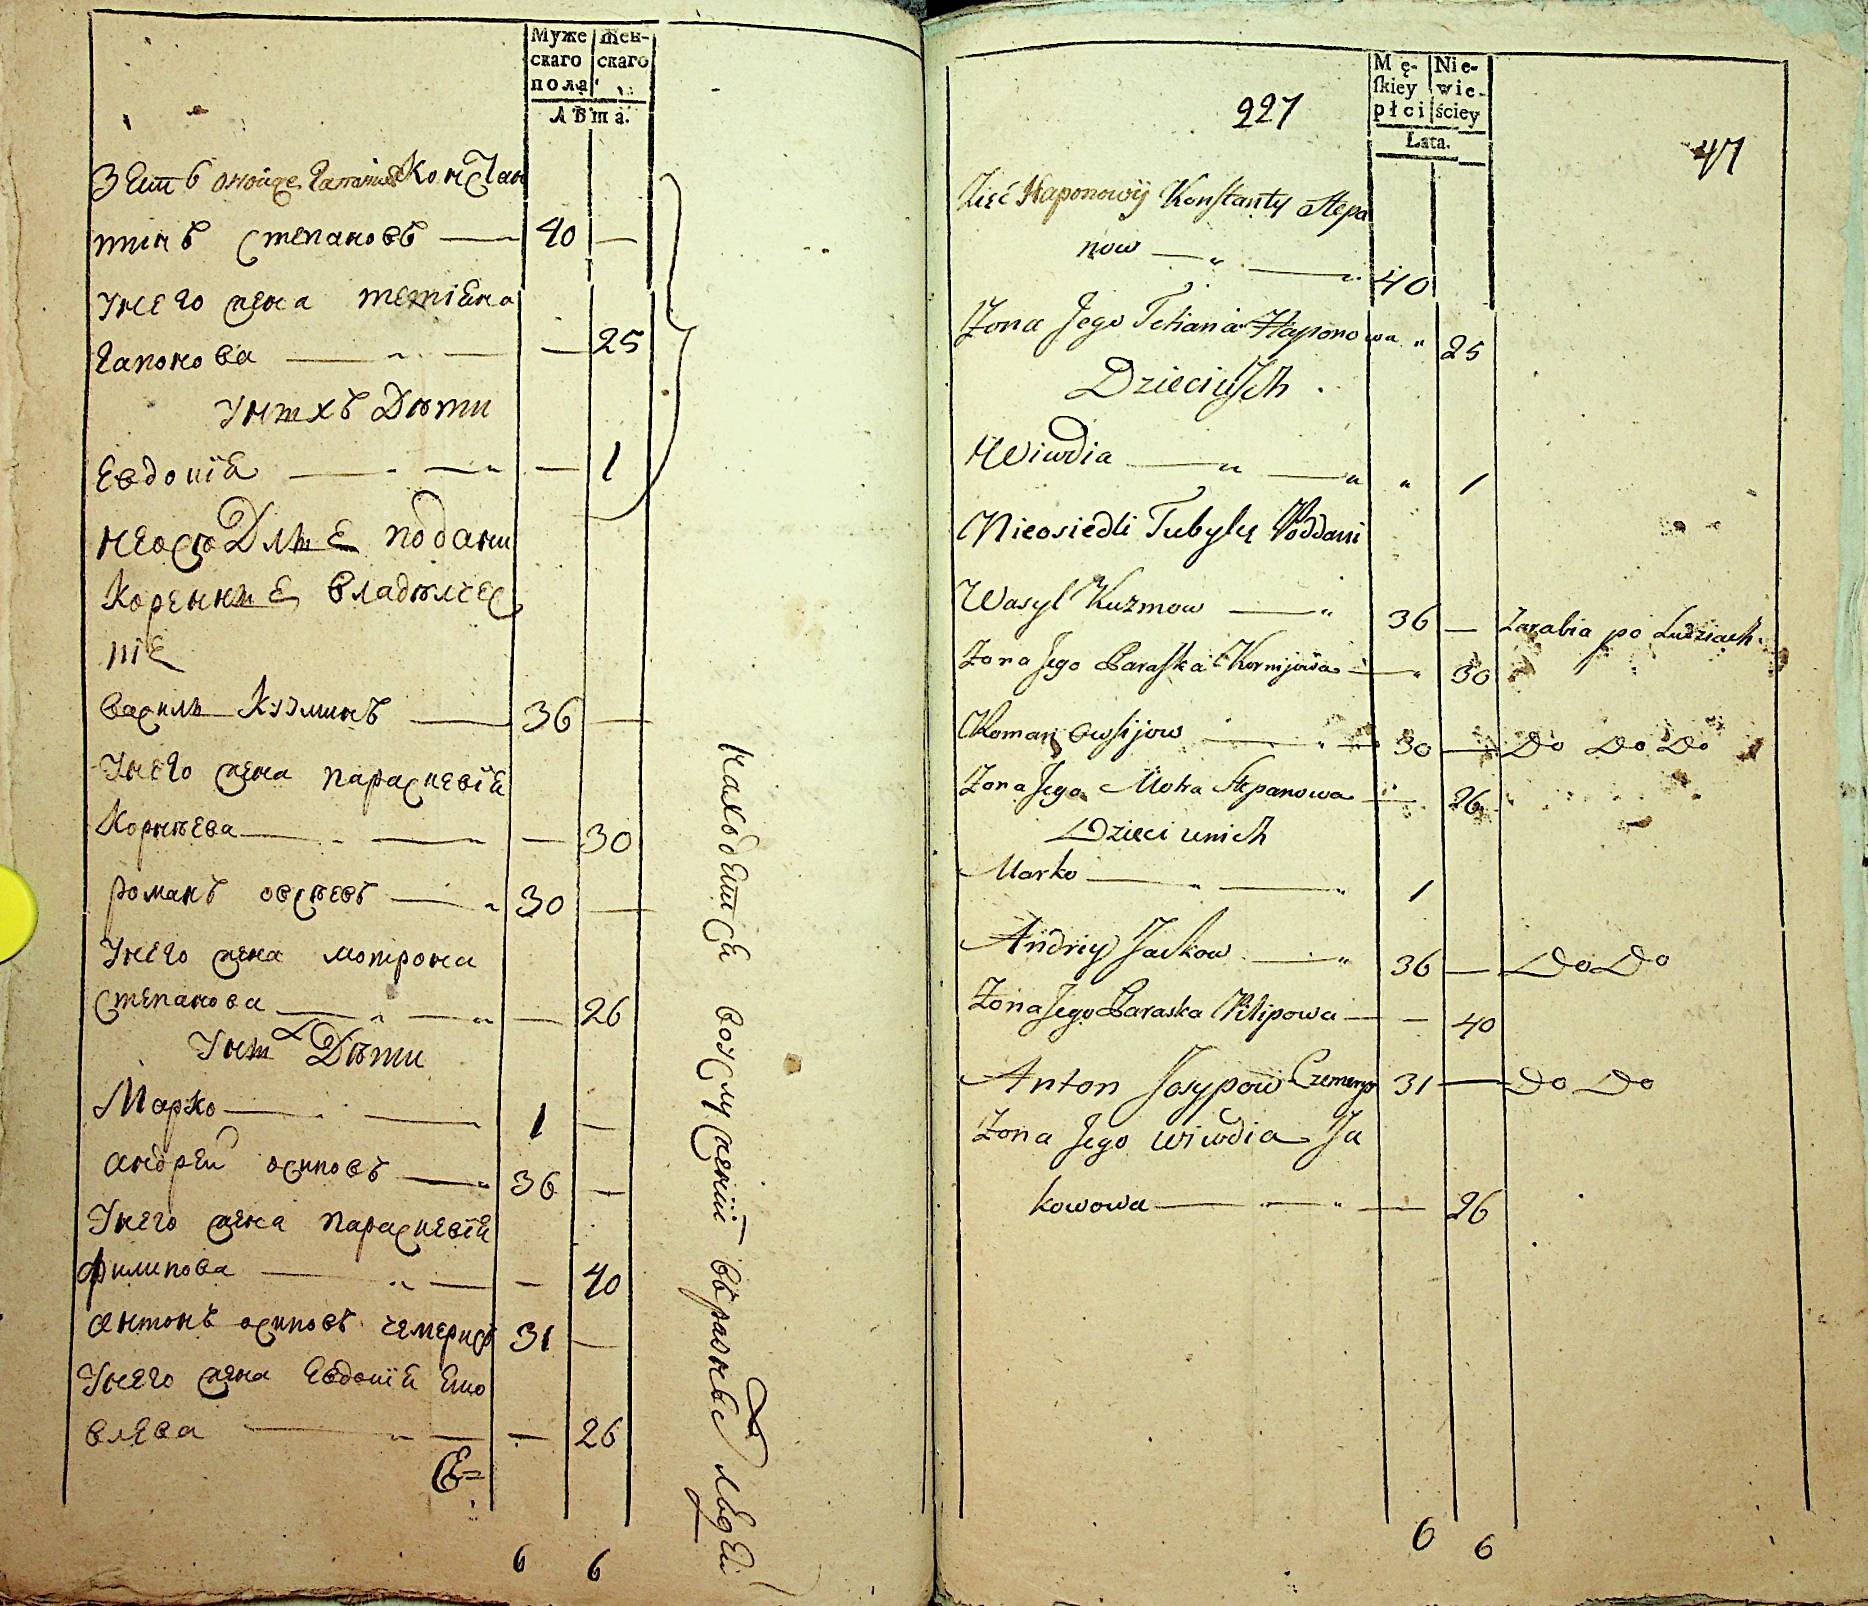 Муже
скаго
пола
Жен-
скаго
Лѣта.
Зять онойже Гапонив Констан
тинъ Степановъ 40 —
Унего жена Тетіяна
Гапонова — 25
Унихъ Дѣти
Евдокія — 1
неоседлые подани
Коренные владѣлчес
кіе
Василь Кузминъ 36 —
Унего жена Параскевія
Корнѣева — 30
Романъ Овсѣевъ 30 —
Унего жена Мотрона
Степанова — 26
Уних Дѣти
Марко 1 —
Андрей Осиповъ 36 —
Унего жена Параскевія
Филипова — 40
Антонъ Осиповъ Чемерисъ 31 —
Унего жена Евдокія Яко
влева — 26
6 6
находятся вослужении вразныхъ людей
Mę-
skiey
płci
Nie-
wie-
ściey
Lata.
227
47
Zięć Haponowy Konstanty Stepa
now 40
Żona Jego Tetiana Haponowa " 25
Dzieci u Ich
Wiwdia " 1
Nieosiedli Tubylcy Poddani
Wasyl Kuzmow 36 — Zarabia po Ludziach
Żona Jego Paraska Kornijowa 30
Roman Owsijow 30 — Do Do Do
Żona Jego Motra Stepanowa 26
Dzieci u nich
Marko 1
Andriy Jaskow 36 — Do Do
Żona Jego Paraska Pilipowa — 40
Anton Josypow Czemerys 31 — Do Do
Żona Jego Wiwdia Ja
kowowa — 26
6 6